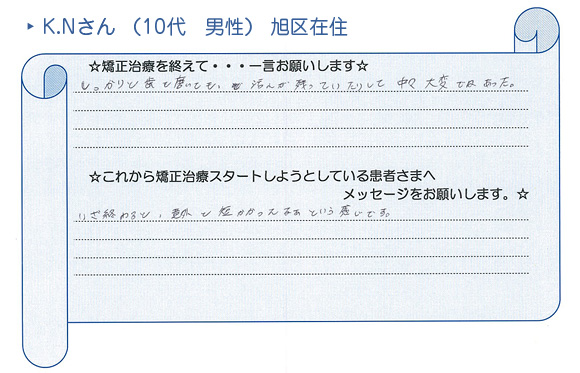 ▸ K.Nさん （10代　男性） 旭区在住
☆矯正治療を終えて・・・一言お願いします☆
しっかりと歯を磨いても、 残っていたりして 中々 大変ではあった。
☆これから矯正治療スタートしようとしている患者さまへ
メッセージをお願いします。☆
いざ終わると、意外と短かかったなぁという感じです。